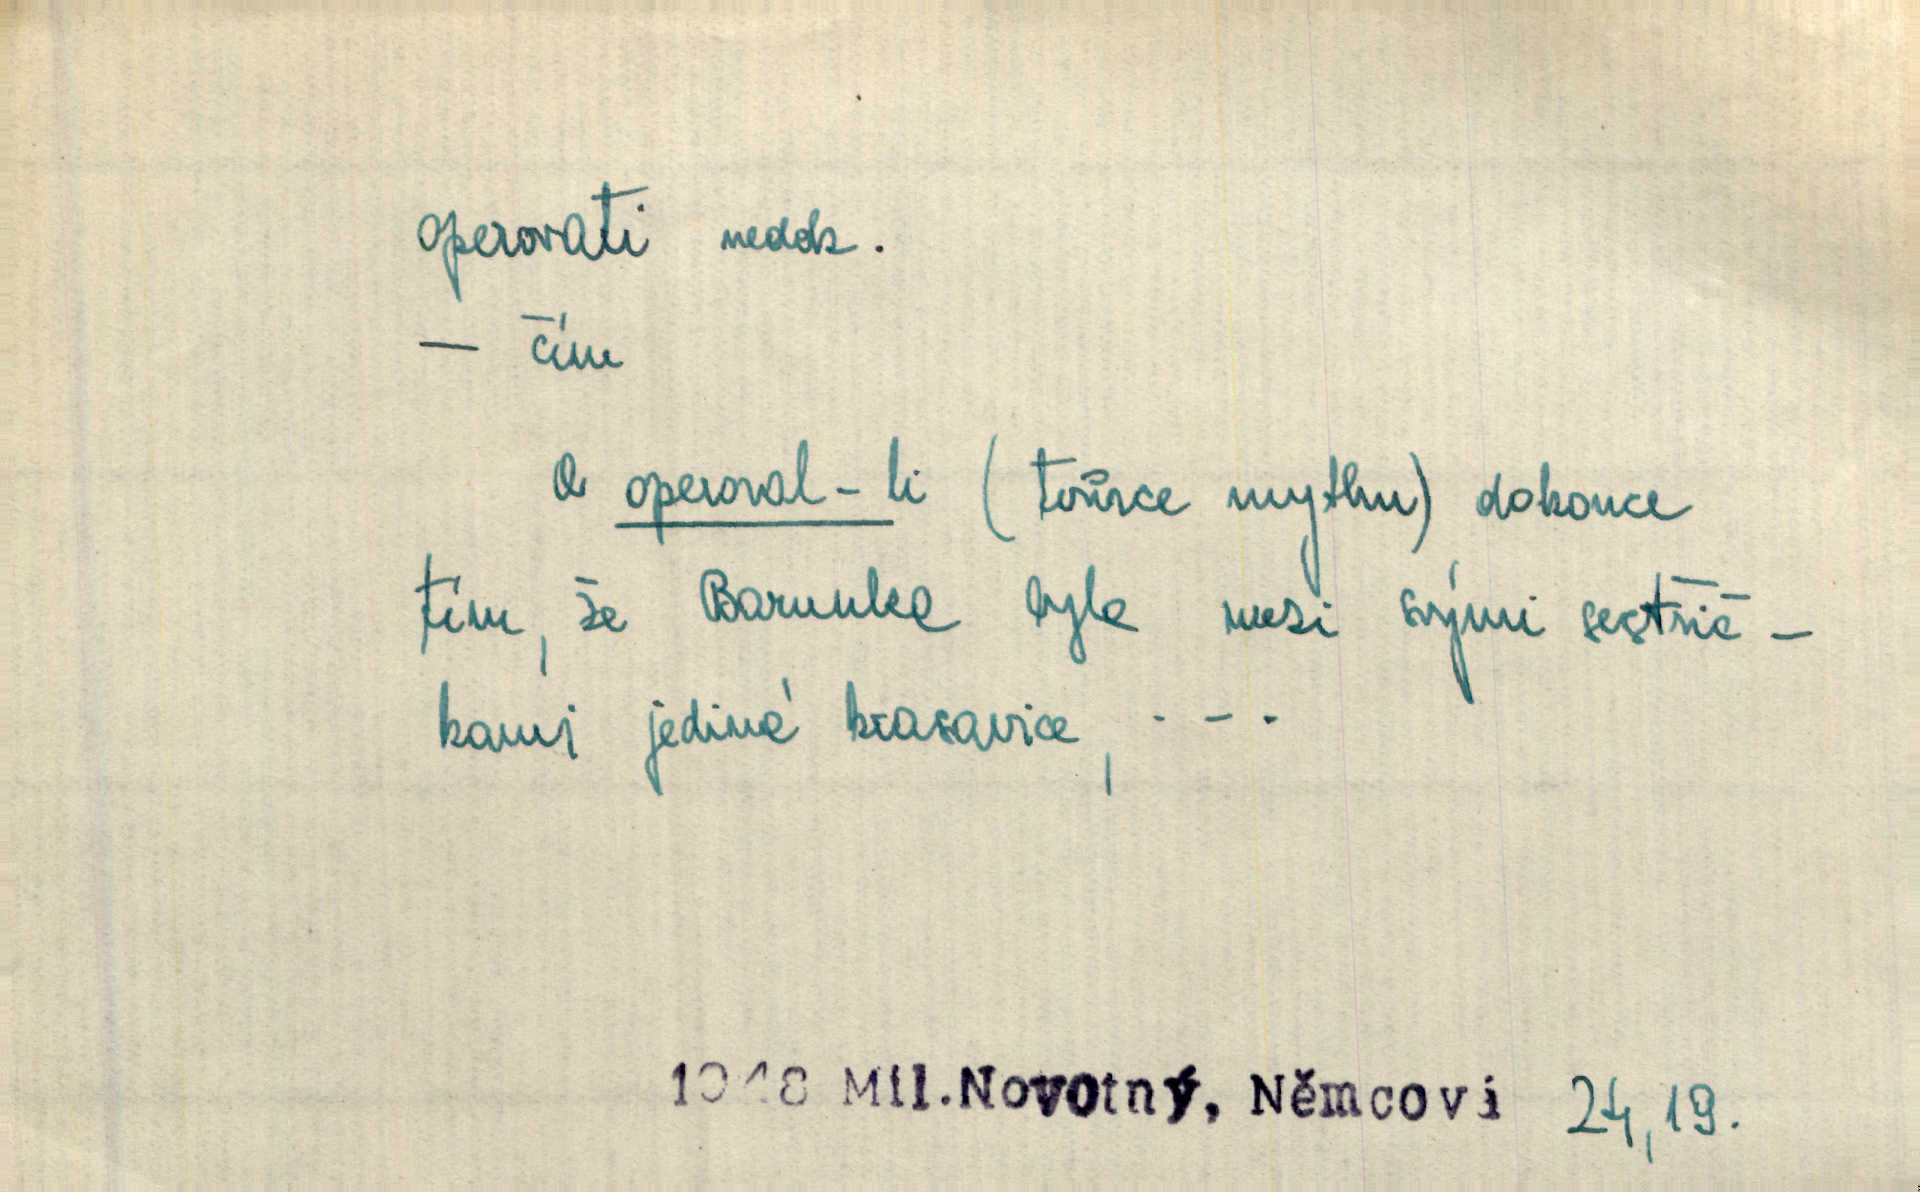 operovati nedok.
— čím
a operoval-li (tvůrce mythu) dokonce
tím, že Barunka byla mezi svými sestřič-
kami jediná krasavice, . - .
1948 Mil.Novotný, Němcovi 24,19.